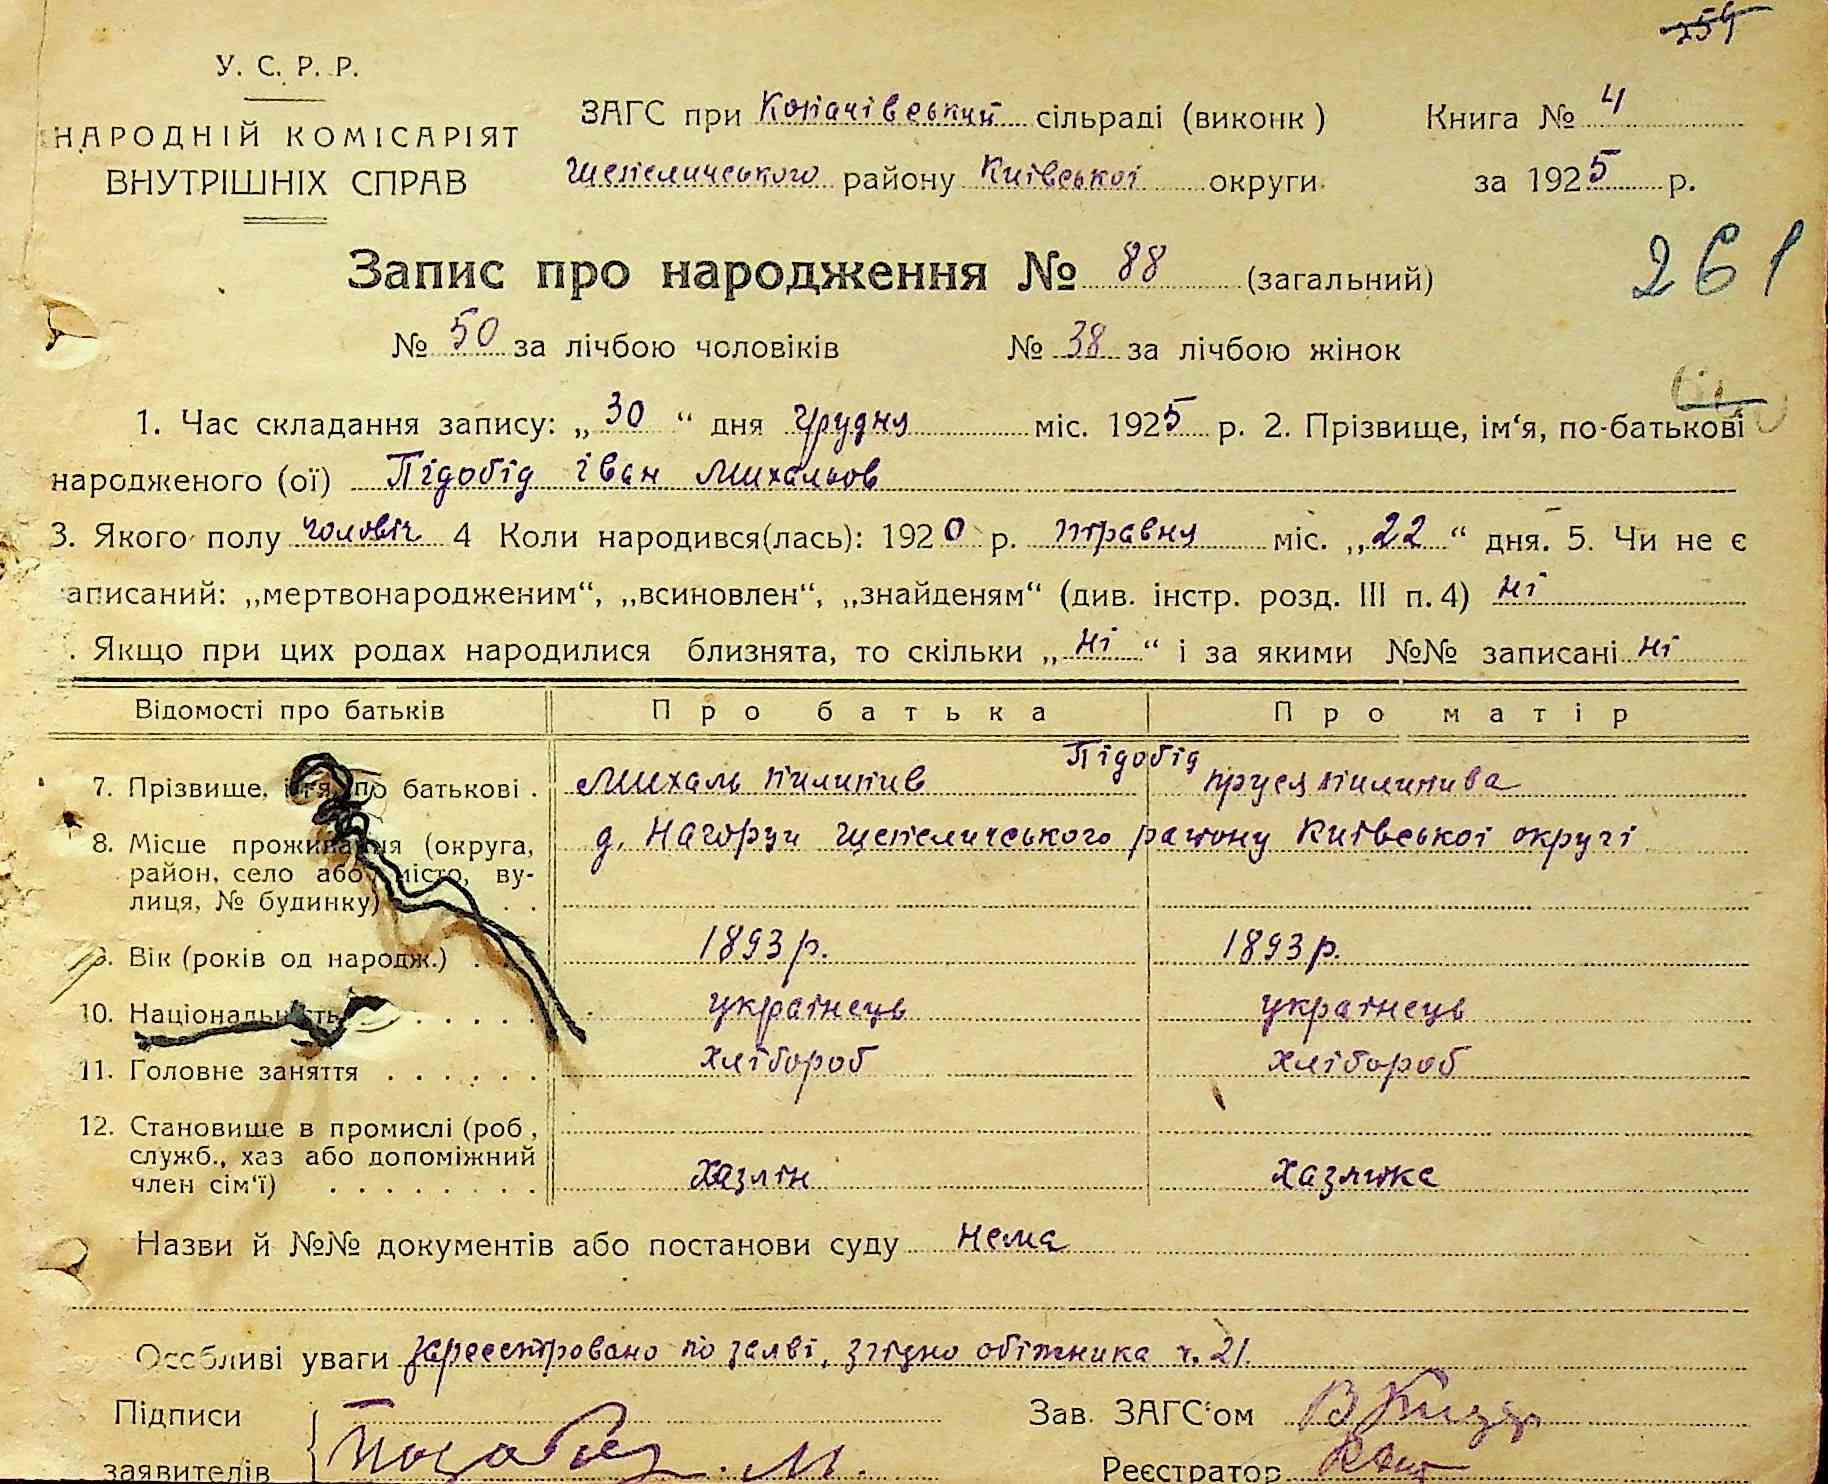 254
У. С. Р. Р.
НАРОДНІЙ КОМІСАРІЯТ
ВНУТРІШНІХ СПРАВ
ЗАГС при Копачівський сільраді (виконк )
Шепелиичського району Київської округи
Книга № 4
за 1925 р.
Запис про народження № 88 (загальний)
261
№ 50 за лічбою чоловіків № 38 за лічбою жінок
1. Час складання запису: „30“ дня грудня міс. 1925 р. 2. Прізвище, ім‘я, по-батькові
народженого (ої) Підобід Іван Михальов
3. Якого полу чоловіч 4 Коли народився(лась): 1920 р. травня міс. „22“ дня. 5. Чи не є
аписаний: „мертвонародженим“, „всиновлен“, „знайденям“ (див. інстр. розд. III п. 4) ні
. Якщо при цих родах народилися близнята, то скільки „ні“ і за якими №№ записані ні
Відомості про батьків Про батька Про матір
Підобід
7. Прізвище, ім‘я, по батькові . Михаль Пилипив пилипива
8. Місце проживання (округа, д. Нагорци Шепеличського району Київської округі
район, село або місто, ву-
лиця, № будинку) . .
9. Вік (років од народж.) . . . 1893 р. 1893 р.
10. Національність . . . . . українець українець
11. Головне заняття . . . . . . хлібороб хлібороб
12. Становище в промислі (роб ,
служб., хаз або допоміжний
член сім‘ї) . . . . . . . . хазяїн хазяйка
Назви й №№ документів або постанови суду нема
Особливі уваги зареєстровано по заяві, згідно обіжника ч. 21.
Підписи Зав. ЗАГС‘ом
заявителів М. Реєстратор